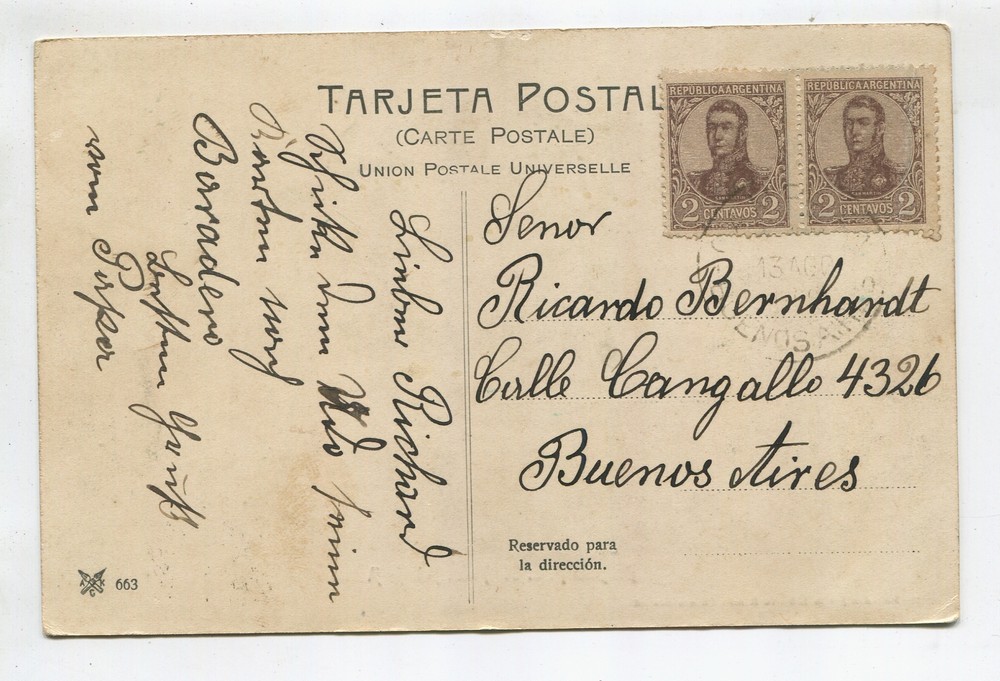 TARJETA POSTAL
(CARTE POSTALE)
UNION POSTALE UNIVERSELLE
REPÚBLICA ARGENTINA
2 CENTAVOS 2
REPÚBLICA ARGENTINA
2 CENTAVOS 2
13 AGO
BUENOS AIRES
Senor
Ricardo Bernhardt
Calle Cangallo 4326
Buenos Aires
Reservado para
la dirección.
Lieber Richard
Schicke dem Udo seine
Karten nach
Baradero
Besten Gruß
vom
663